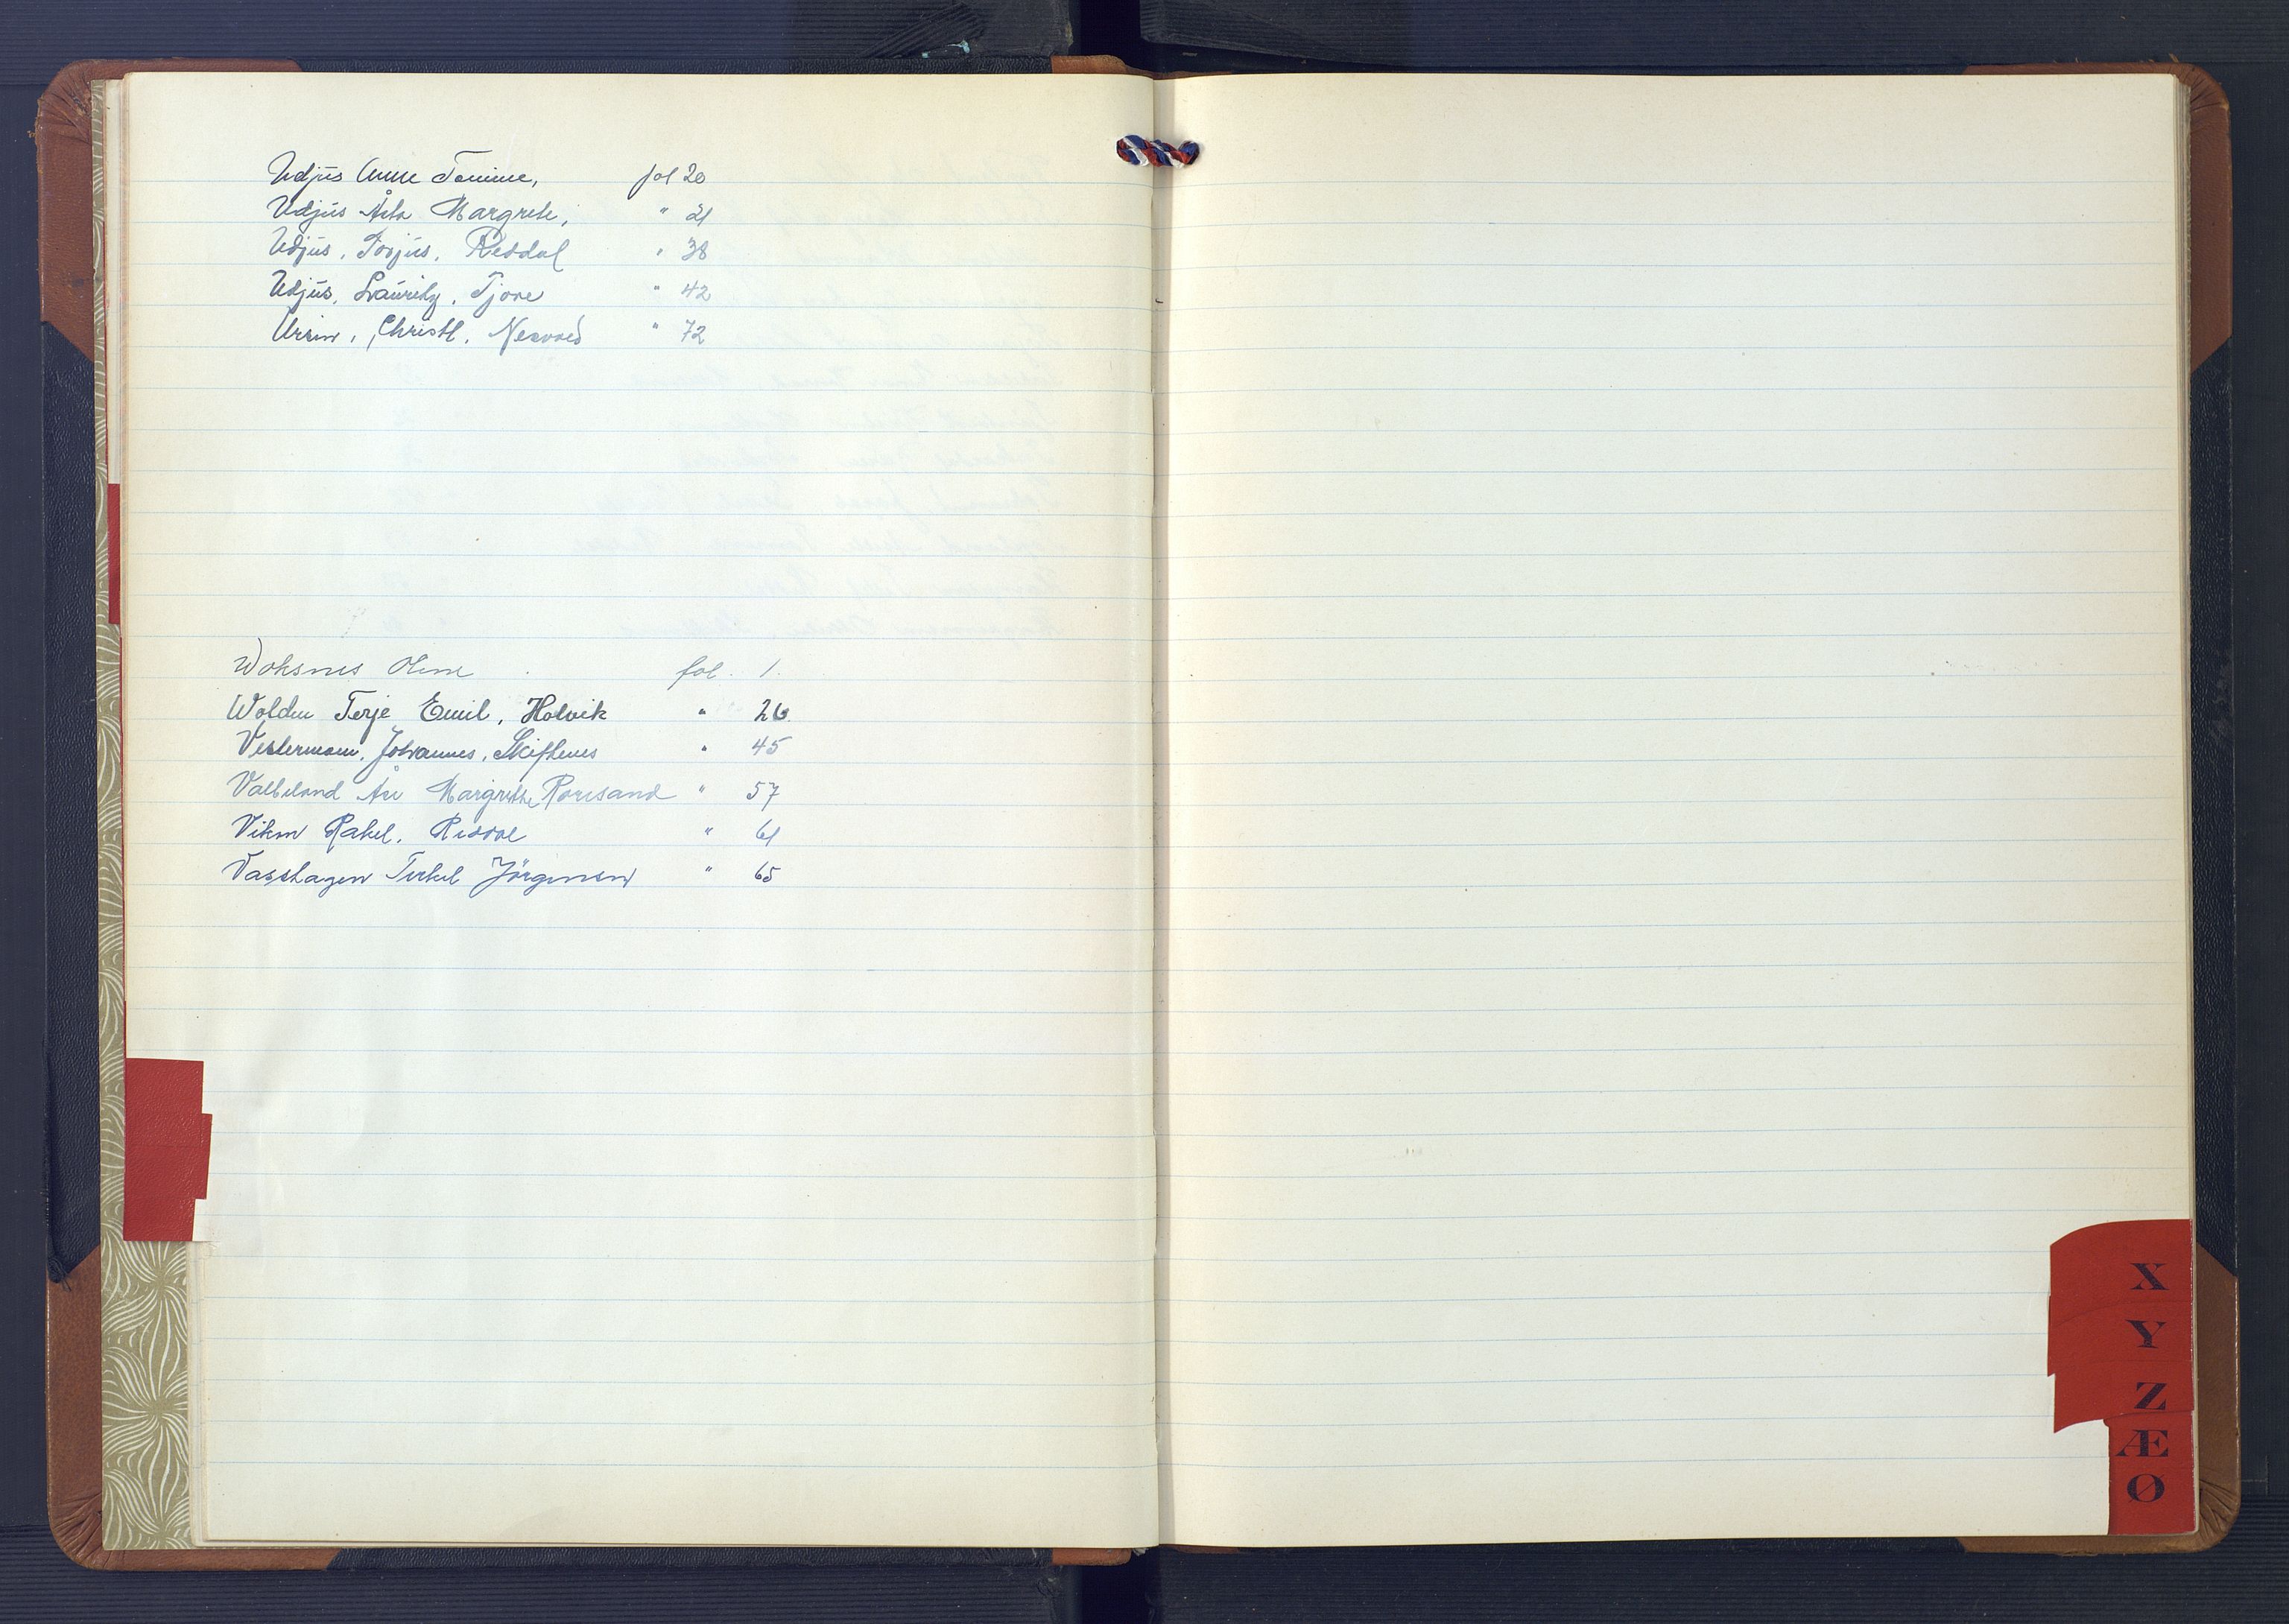 Udjus Anne Tomine, fol 20
Udjus Åsta Margrete, " 21
Udjus, Torjus, Reddal " 38
Udjus, Lauritz, Tjore " 42
Ursin, Christl. Nesvord " 72
Woksnes Olene fol. 1.
Wolden Terje Emil, Holvik " 26
Vestermann, Johannes, Skiftenes " 45
Valbeland Åse Margrethe Roresand " 57
Viken Rakel, Reddal " 61
Vasshagen Terkel Jörgensen " 65
X
Y
Z
Æ
Ø